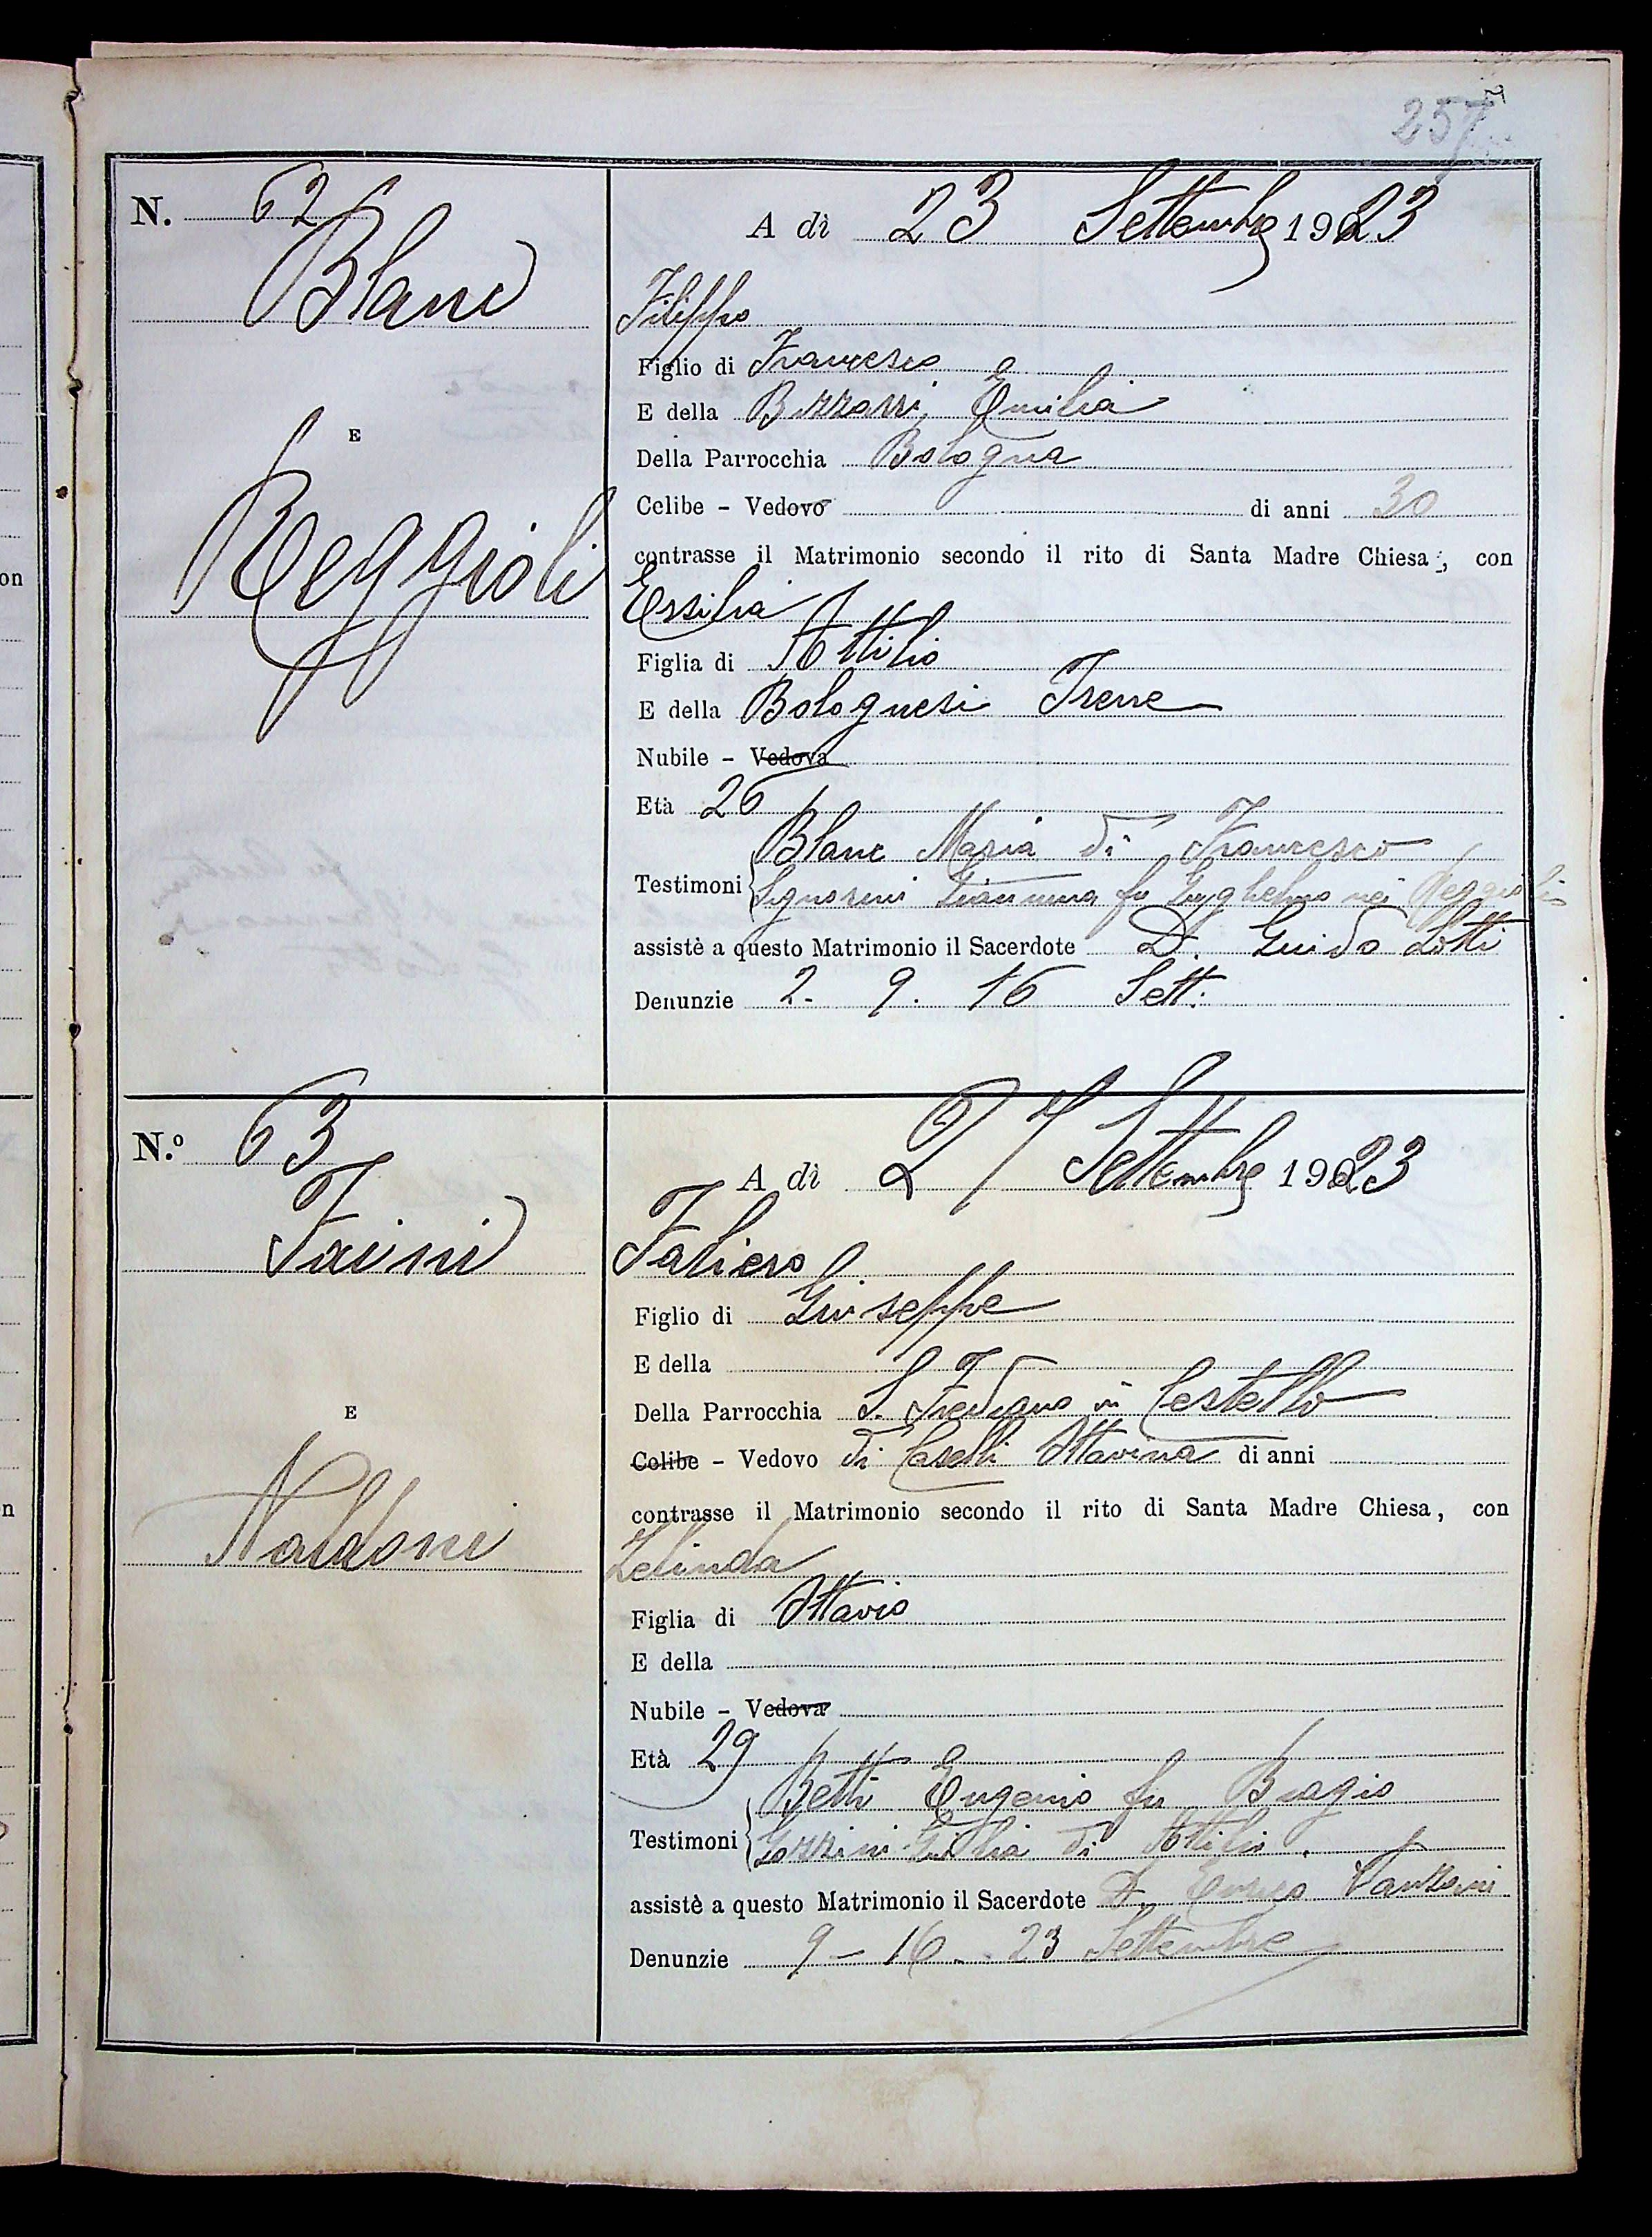 257
N. 62
Blanc
E
Reggioli
A dì 23 Settembre 1923
Filippo
Figlio di Francesco
E della Bizzarri Emilia
Della Parrocchia Bologna
Celibe - Vedovo di anni 30
contrasse il Matrimonio secondo il rito di Santa Madre Chiesa, con
Ersilia
Figlia di Attilio
E della Bolognesi Irene
Nubile - Vedova
Età 26
Blanc Maria di Francesco
Testimoni Signorini fu Guglielmo nei Reggioli
assistè a questo Matrimonio il Sacerdote D. Guido Lotti
Denunzie 2. 9. 16 Sett.
N.º 63
Faini
E
Naldoni
A dì 27 Settembre 1923
Faliero
Figlio di Giuseppe
E della
Della Parrocchia S. Frediano in Cestello
Celibe - Vedovo di Caselli Ottavina di anni
contrasse il Matrimonio secondo il rito di Santa Madre Chiesa, con
Zelinda
Figlia di Ottavio
E della
Nubile - Vedova
Età 29
Betti Eugenio fu Biagio
Testimoni Gozzini Giulia di Attilio.
assistè a questo Matrimonio il Sacerdote D. Enrico Vanzoni
Denunzie 9 - 16 - 23 Settembre